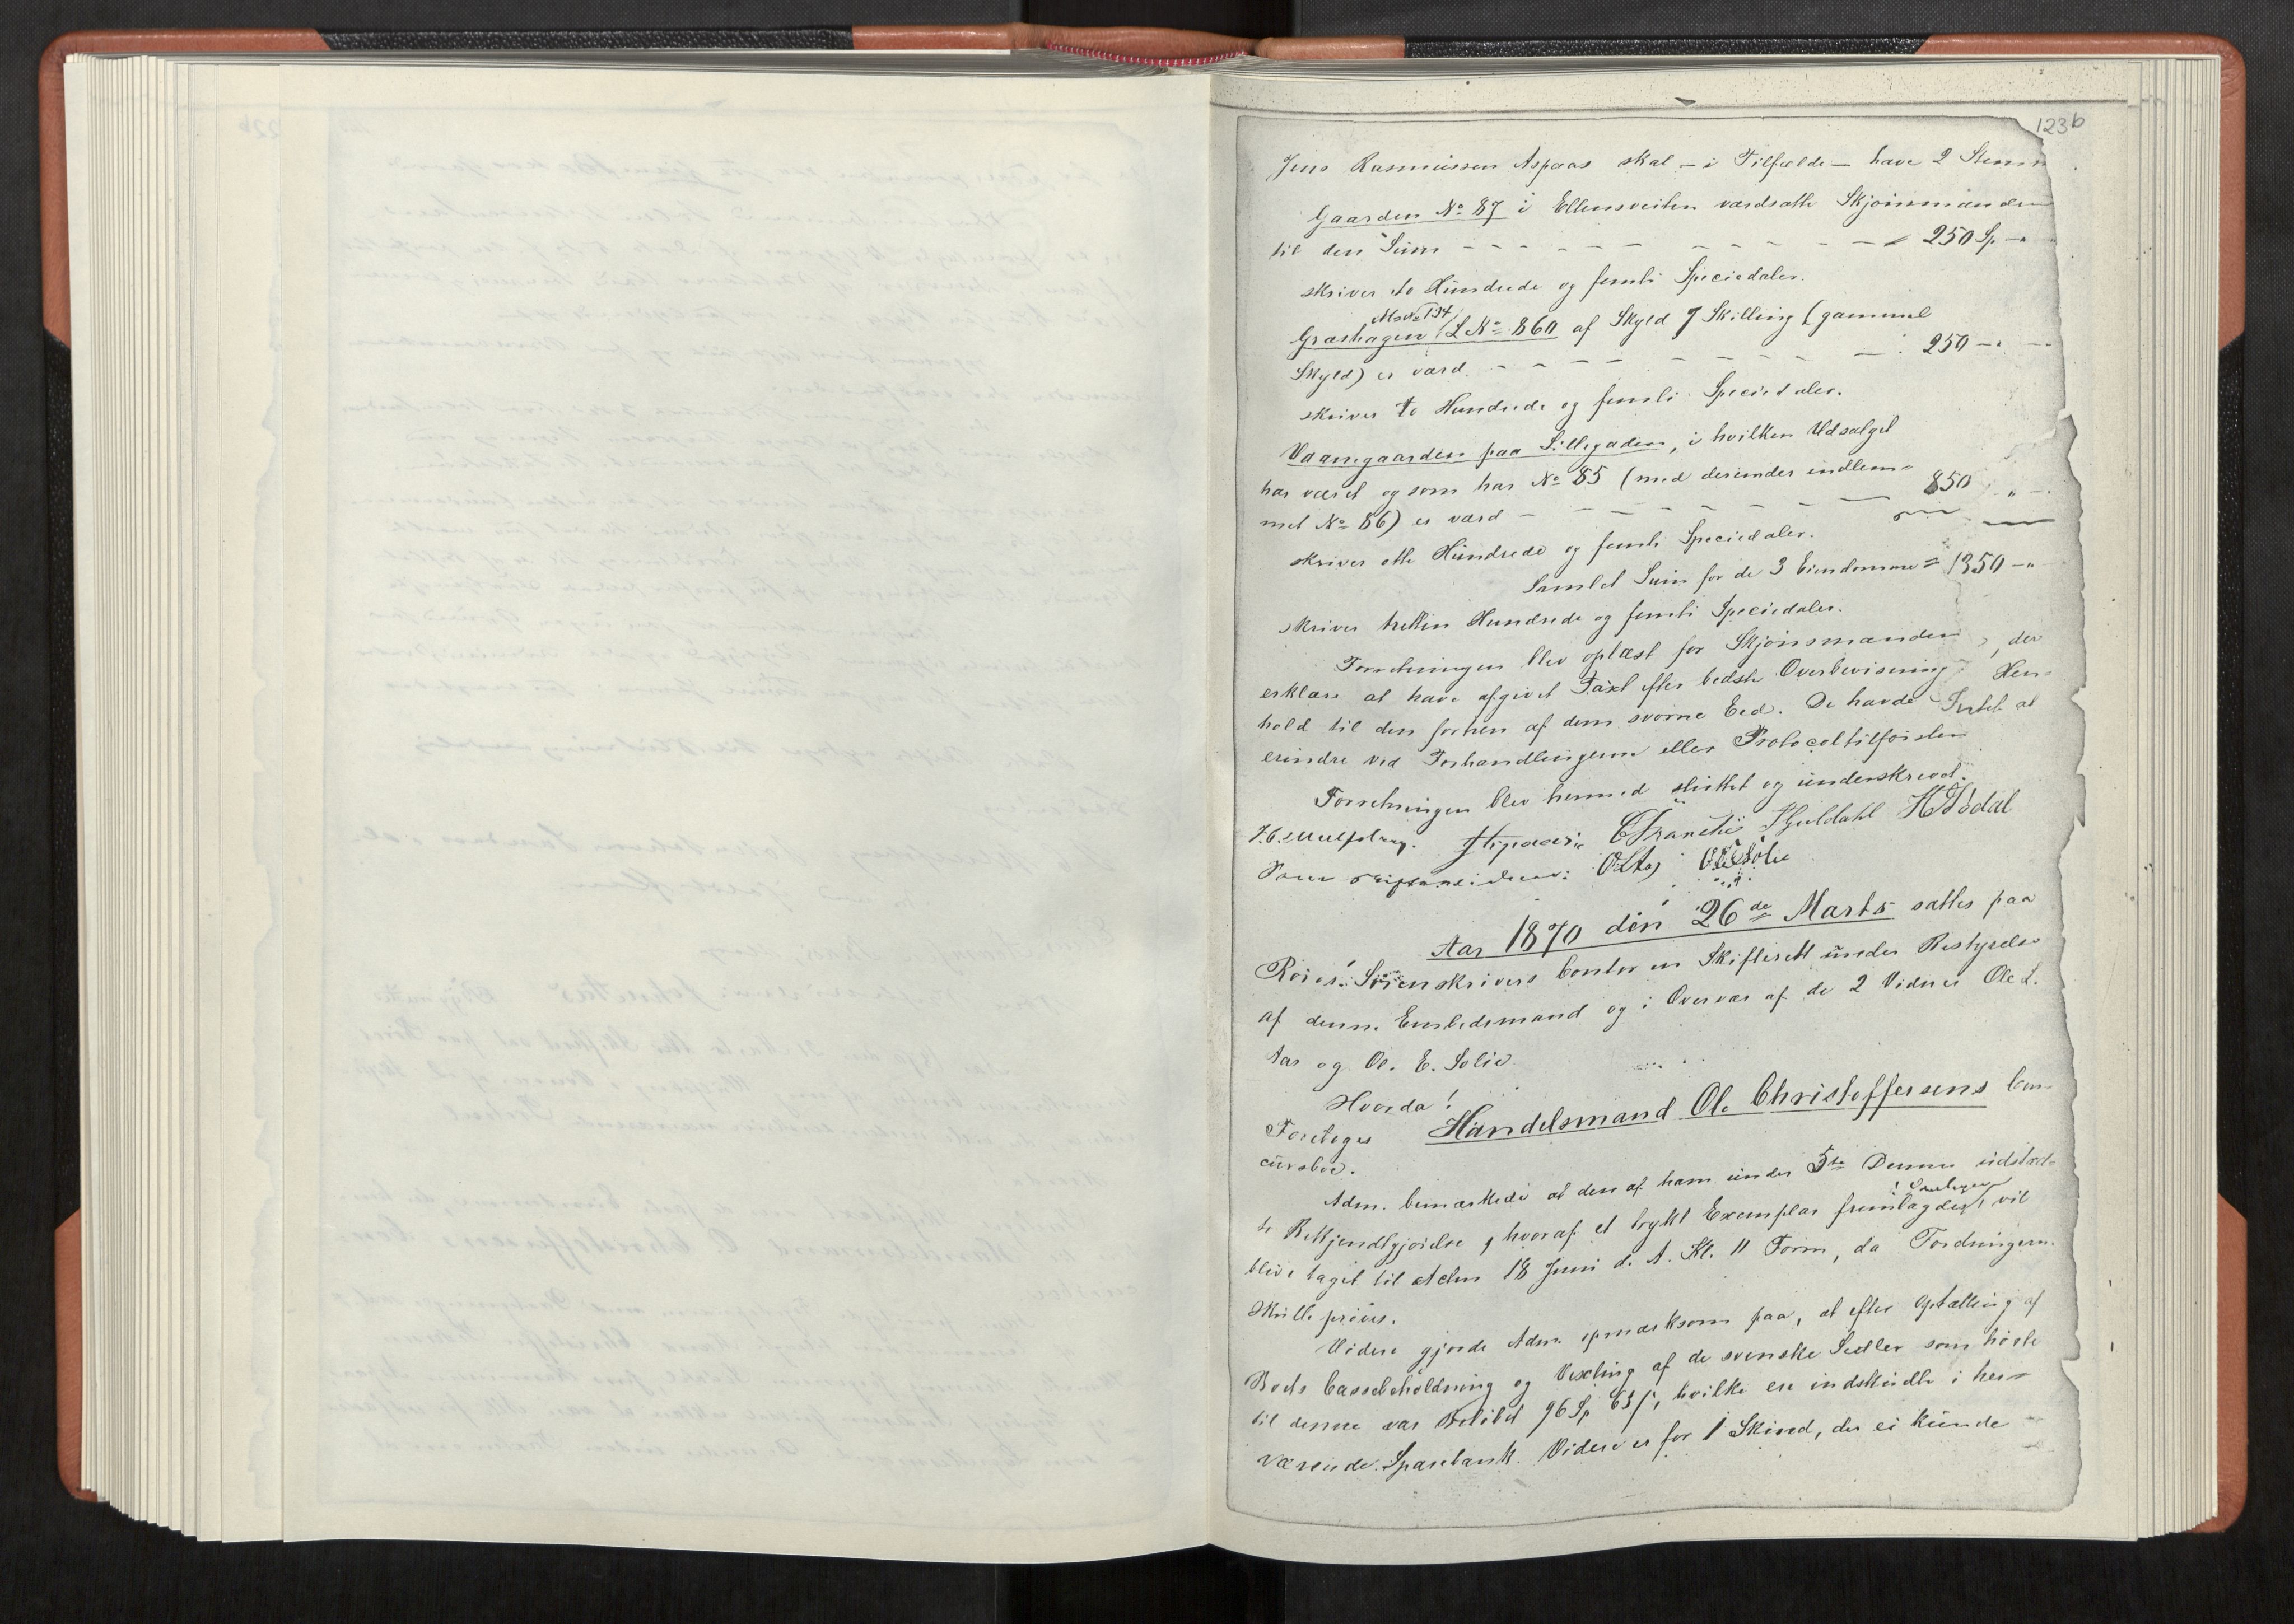 123b
Jens Rasmussen Aspaas skal – i Tilfælde – have 2 Stemm
Gaarden No 87 i Ellensveiten værdsatte Skjønsmænden
til den Sum – – – – – – – – – 250 Sp – "
skriver to Hundrede og femti Speciedaler.
M No 134
Græshagen L No 860 af Skyld 7 Skilling (gammel
Skyld) er værd – – – – – – – 250 – " –
skriver to Hundrede og femti Speciedaler.
Vaanegaarden paa Lillegaden, i hvilken Udsalget
har været og som har No 85 (med derunder indlem-
met No 86) er værd – – – – – – – 850 – " –
skriver otte Hundrede og femti Speciedaler.
Samlet Sum for de 3 Eiendomme = 1350 – "
skriver tretten Hundrede og femti Speciedaler.
Forretningen blev oplæst for Skjønsmænden, der
erklære at have afgivet Taxt efter bedste Overbevisning Hen-
hold til den forhen af dem svorne Eed. De havde Intet at
erindre ved Forhandlingerne eller Protocoltilførslen
Forretningen blev hermed sluttet og underskrevet.
Hjuldahl
Som
Aar 1870 den 26de Marts sattes paa
Røros Sorenskrivers Contor en Skifteret under Bestyrelse
af denne Embedsmand og i Overvær af de 2 Vidner Ole L.
Aas og Ol. E. Solie
Hvorda!
Foretoges Handelsmand Ol. Christoffersens Con-
cursboe.
Adm. bemærkede at den af ham under 5te Dennes udstæd-
te Bekjendtgjørelse, hvoraf et trykt Exemplar fremlagdes, vil
blive taget til den 18 Juni d. A. Kl. 11 Form, da Fordringerne
skulle prøves.
Videre gjorde Adm. opmærksom paa, at efter Optælling af
Boets Cassebeholdning og Vexling af de svenske Sedler som hørte
til denne var Beløbet 96 Sp 63 s, hvilke ere indskudte i her-
værende Sparebank. Videre er for 1 Skind, der ei kunde